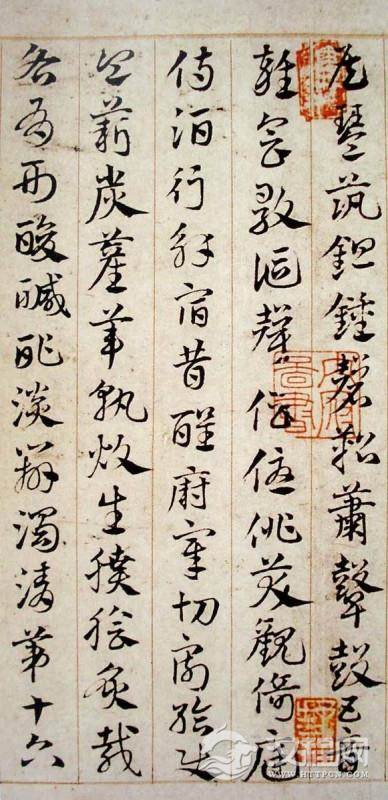 琴筑鉦鍾磬鞀簫鼙鼓五音
雜會歌謳聲倡優俳笑觀倚庭
侍酒行觴宿昔酲廚宰切割給使
令薪炭萑葦孰炊生膹膾炙胾
各有形酸鹹酢淡辨濁清第十六
汉程网
WWW.HTTPCN.COM